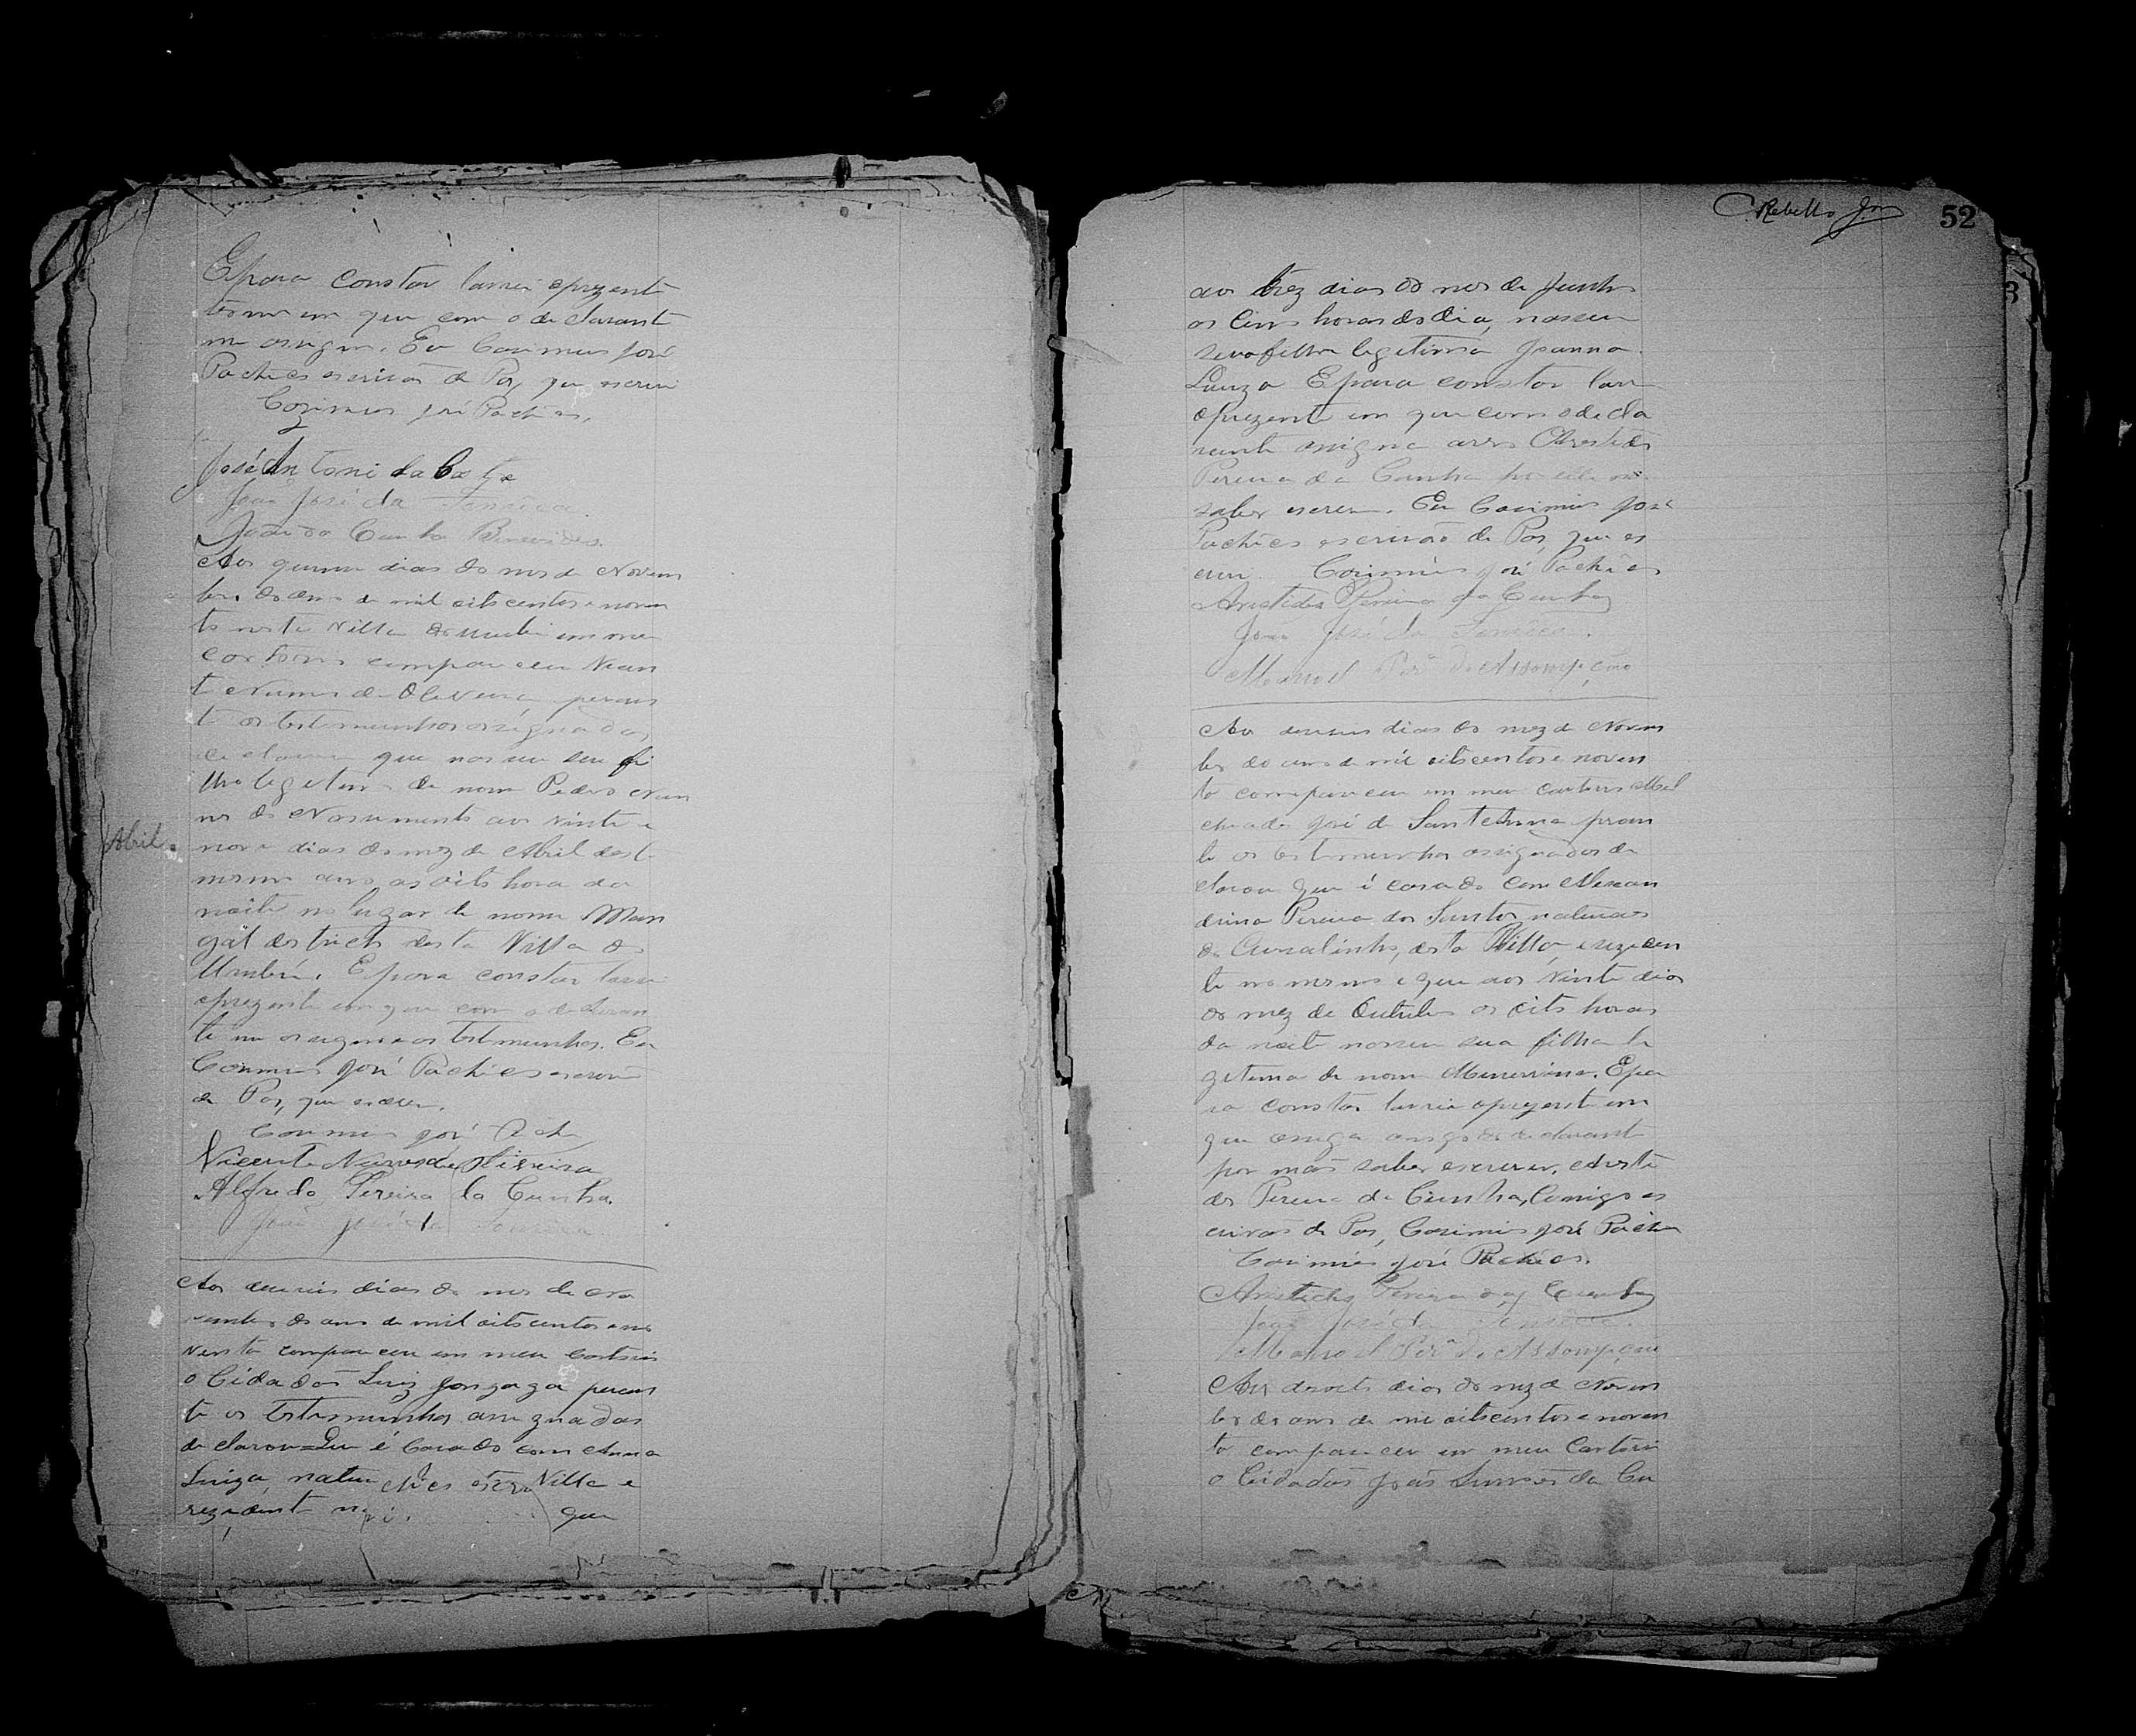 E para constar lavrei o prezente
termo em que com o declarante
me assigno. Eu Cozimiro José
Pachêco escrivão de Paz, que escrevi
Cozimiro José Pachêco,
José Antonio da Costa
João José da Fonsêca.
João da Cunha Benevides.
Aos quinze dias do mes de Novem
bro do anno de mil oitocentos e noven
ta nesta Villa do em meu
cartorio compareceu Vicen
te Nunes de Oliveira, peran
te as testemunhas assignadas,
declarou que nasceu seu fi
lho legitimo de nome Pedro Nun
nes do Nascimento aos vinte e
Abril
nove dias do mez de Abril deste
mesmo anno as oito hora da
noite no lugar de nome Man
gal destricto desta Villa do
E para constar lavrei
o prezente em que com o declaran
te me assigno e as testemunhas. Eu
Cozimiro José Pachêco escrivão
de Paz, que escrevi.
Cozimiro José
Vicente Nunes de Oliveira
Alfredo Pereira da Cunha.
João José da Fonsêca
Aos dias do mes de No
vembro do anno de mil oitocentos e no
venta compareceu em meu Cartorio
o Cidadão Luiz Gonzaga peran
te as testemunhas assignadas
declarou = Que é Casado com Anna
Luiza, desta Villa e
rezidente que
C. Rebello Jor 52
aos trez dias do mes de Junho
as cinco horas do dia, nasceu
sua filha legitima Joanna
Luiza E para constar lavrei
o prezente em que com o decla
rante assigna a rogo Aristides
Pereira da Cunha por elle não
saber escrever. Eu Cozimiro José
Pachêco escrivão de Paz, que es
crevi. Cozimiro José Pachêco
Aristides Pereira da Cunha
João José da Fonsêca.
Manoel Per.ª de Assompção
Aos dias do mez de Novem
bro do anno de mil oitocentos e noven
ta compareceu em meu cartorio Mel
chiades José de Sant'Anna peran
te as testemunhas assignadas de
clarou que é casado com Alexan
drina Pereira dos Santos naturaes
do desta Villa, e reziden
te no mesmo e que aos vinte dias
do mez de Outubro as oito horas
da noite nasceu sua filha le
gitima de nome Minervina. E pa
ra constar lavrei o prezente em
que assigna a rogo do declarante
por não saber escrever, Aristi
des Pereira da Cunha, Comigo es
crivão de Paz, Cozimiro José Pachêco
Cozimiro José Pachêco.
Aristides Pereira da Cunha
João José da Fonsêca.
Manoel Per.ª de Assompção
Aos dezoito dias do mez de Novem
bro do anno de mil oitocentos e noven
ta compareceu em meu Cartorio
o Cidadão João da Cu